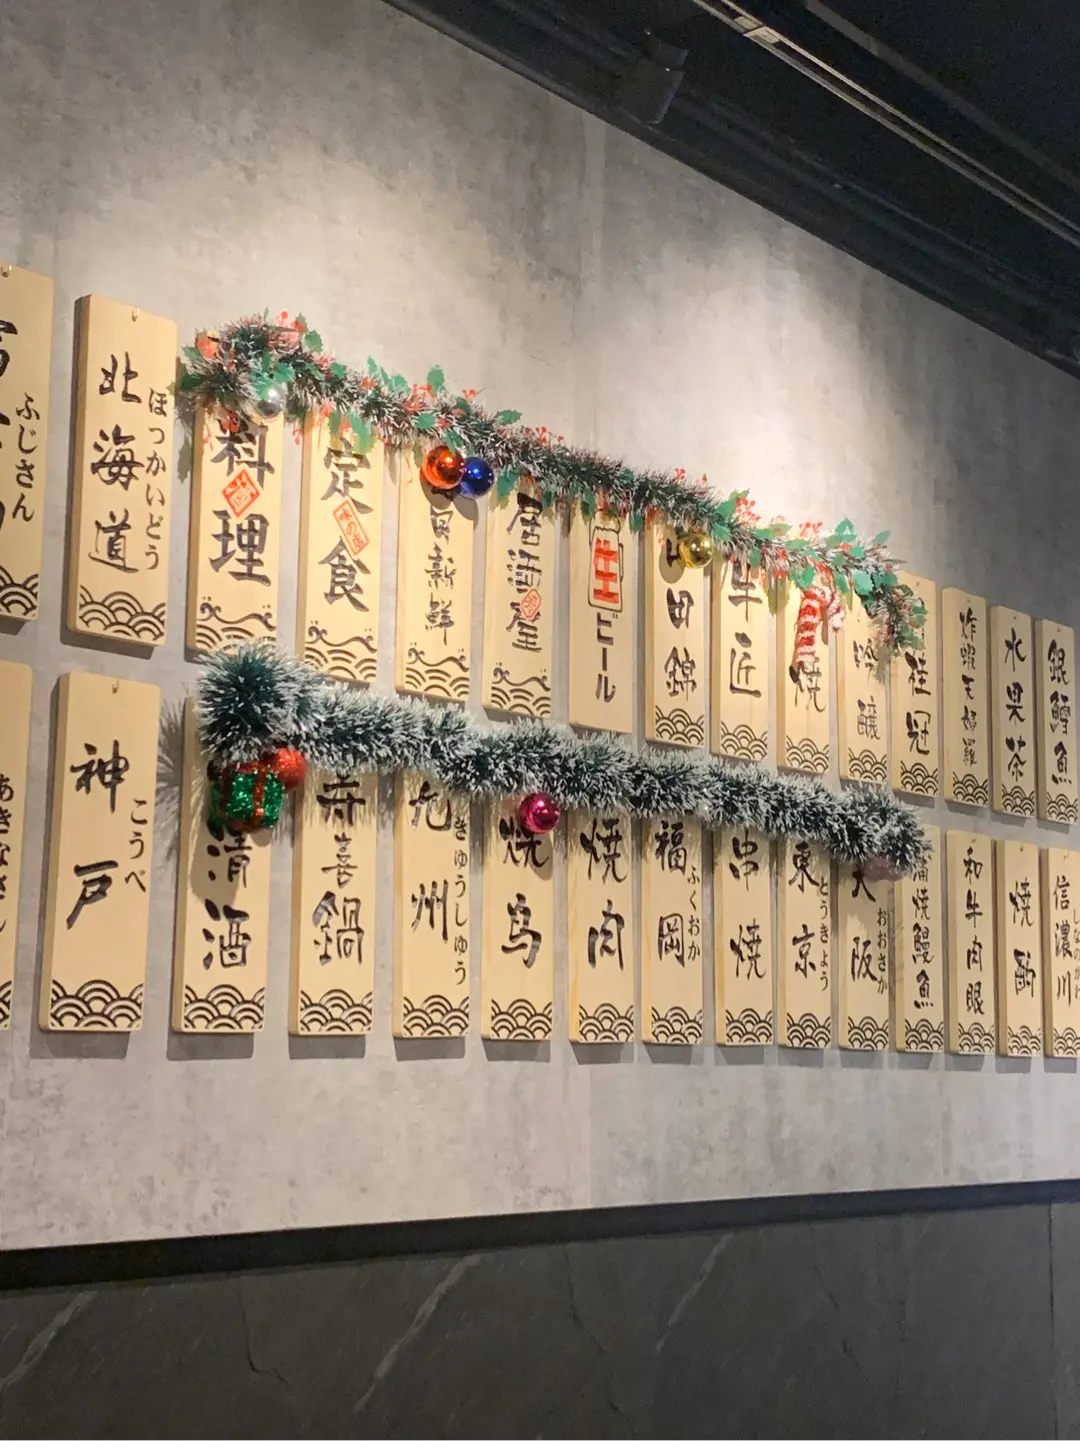 ふじさん
北海道
ほっかいどう
料理
定食
味の店
新鮮
居酒屋
生ビール
田錦
牛匠
焼
醸
桂冠
炸蝦天婦羅
水果茶
銀鱈魚
神戸
こうべ
清酒
寿喜鍋
九州
きゅうしゅう
焼鳥
焼肉
福岡
ふくおか
串焼
東京
とうきょう
大阪
おおさか
蒲焼鰻魚
和牛肉眼
焼酎
信濃川